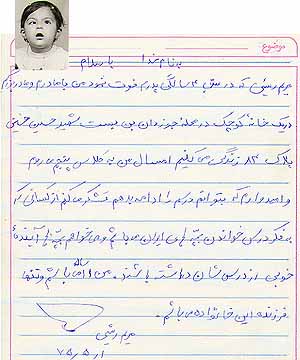 موضوع
بنام خدا با سلام
مریم رشیدی که در سن ۴ سالگی پدرم فوت نمود من با مادرم و مادربزرگم
در یک خانه کوچک در محله جوزدان بن بست شهید حسین حسینی
پلاک ۸۳ زندگی می کنیم امسال من به کلاس پنجم می روم
و امیدوارم که بتوانم درسم را ادامه بدهم تشکر می کنم از کسانی که
به فکر درس خواندن بچه های ایران می باشند و می خواهم بچه ها آینده
خوبی از درس شان داشته باشند. من ۱۱ ساله می باشم و تنها
فرزند این خانواده می باشم.
مریم رشیدی
۷۵,۵